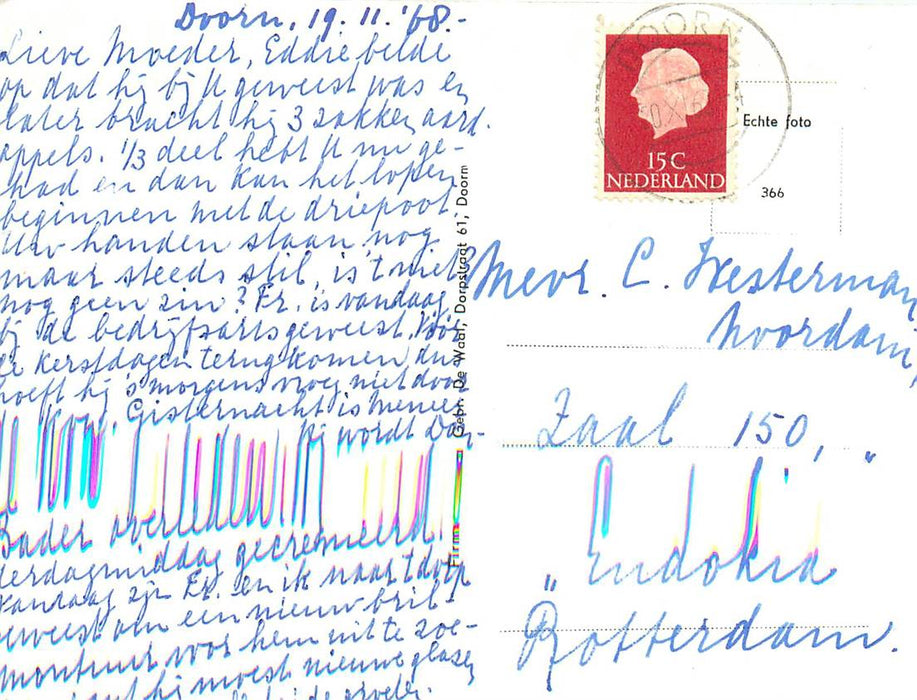 Doorn, 19. 11. '68.-
Lieve Moeder, Eddie belde
op dat hij bij U geweest was en
later bracht hij 3 zakken aard.
appels. 1/3 deel hebt U nu ge-
had en dan kan het lopen
beginnen met de driepoot.
Uw handen staan nog
maar steeds stil, is 't niet
nog geen zin? Er. is vandaag
bij de bedrijfsarts geweest. Vóór
de Kerstdagen terug komen dus
hoeft hij 's morgens vroeg niet door
Gisternacht is meneer
Bader overleden. Hij wordt Don-
derdagmiddag gecremeerd.
Vandaag zijn Er. en ik naar 't dorp
geweest om een nieuw bril-
montuur voor hem uit te zoe-
want hij moest nieuwe glazen
Firma Gebr. De Waal, Dorpstraat 61, Doorn
DOORN
15 C
NEDERLAND
Echte foto
366
Mevr. C. Westerman
Zaal 150,
"Eudokia"
Rotterdam.